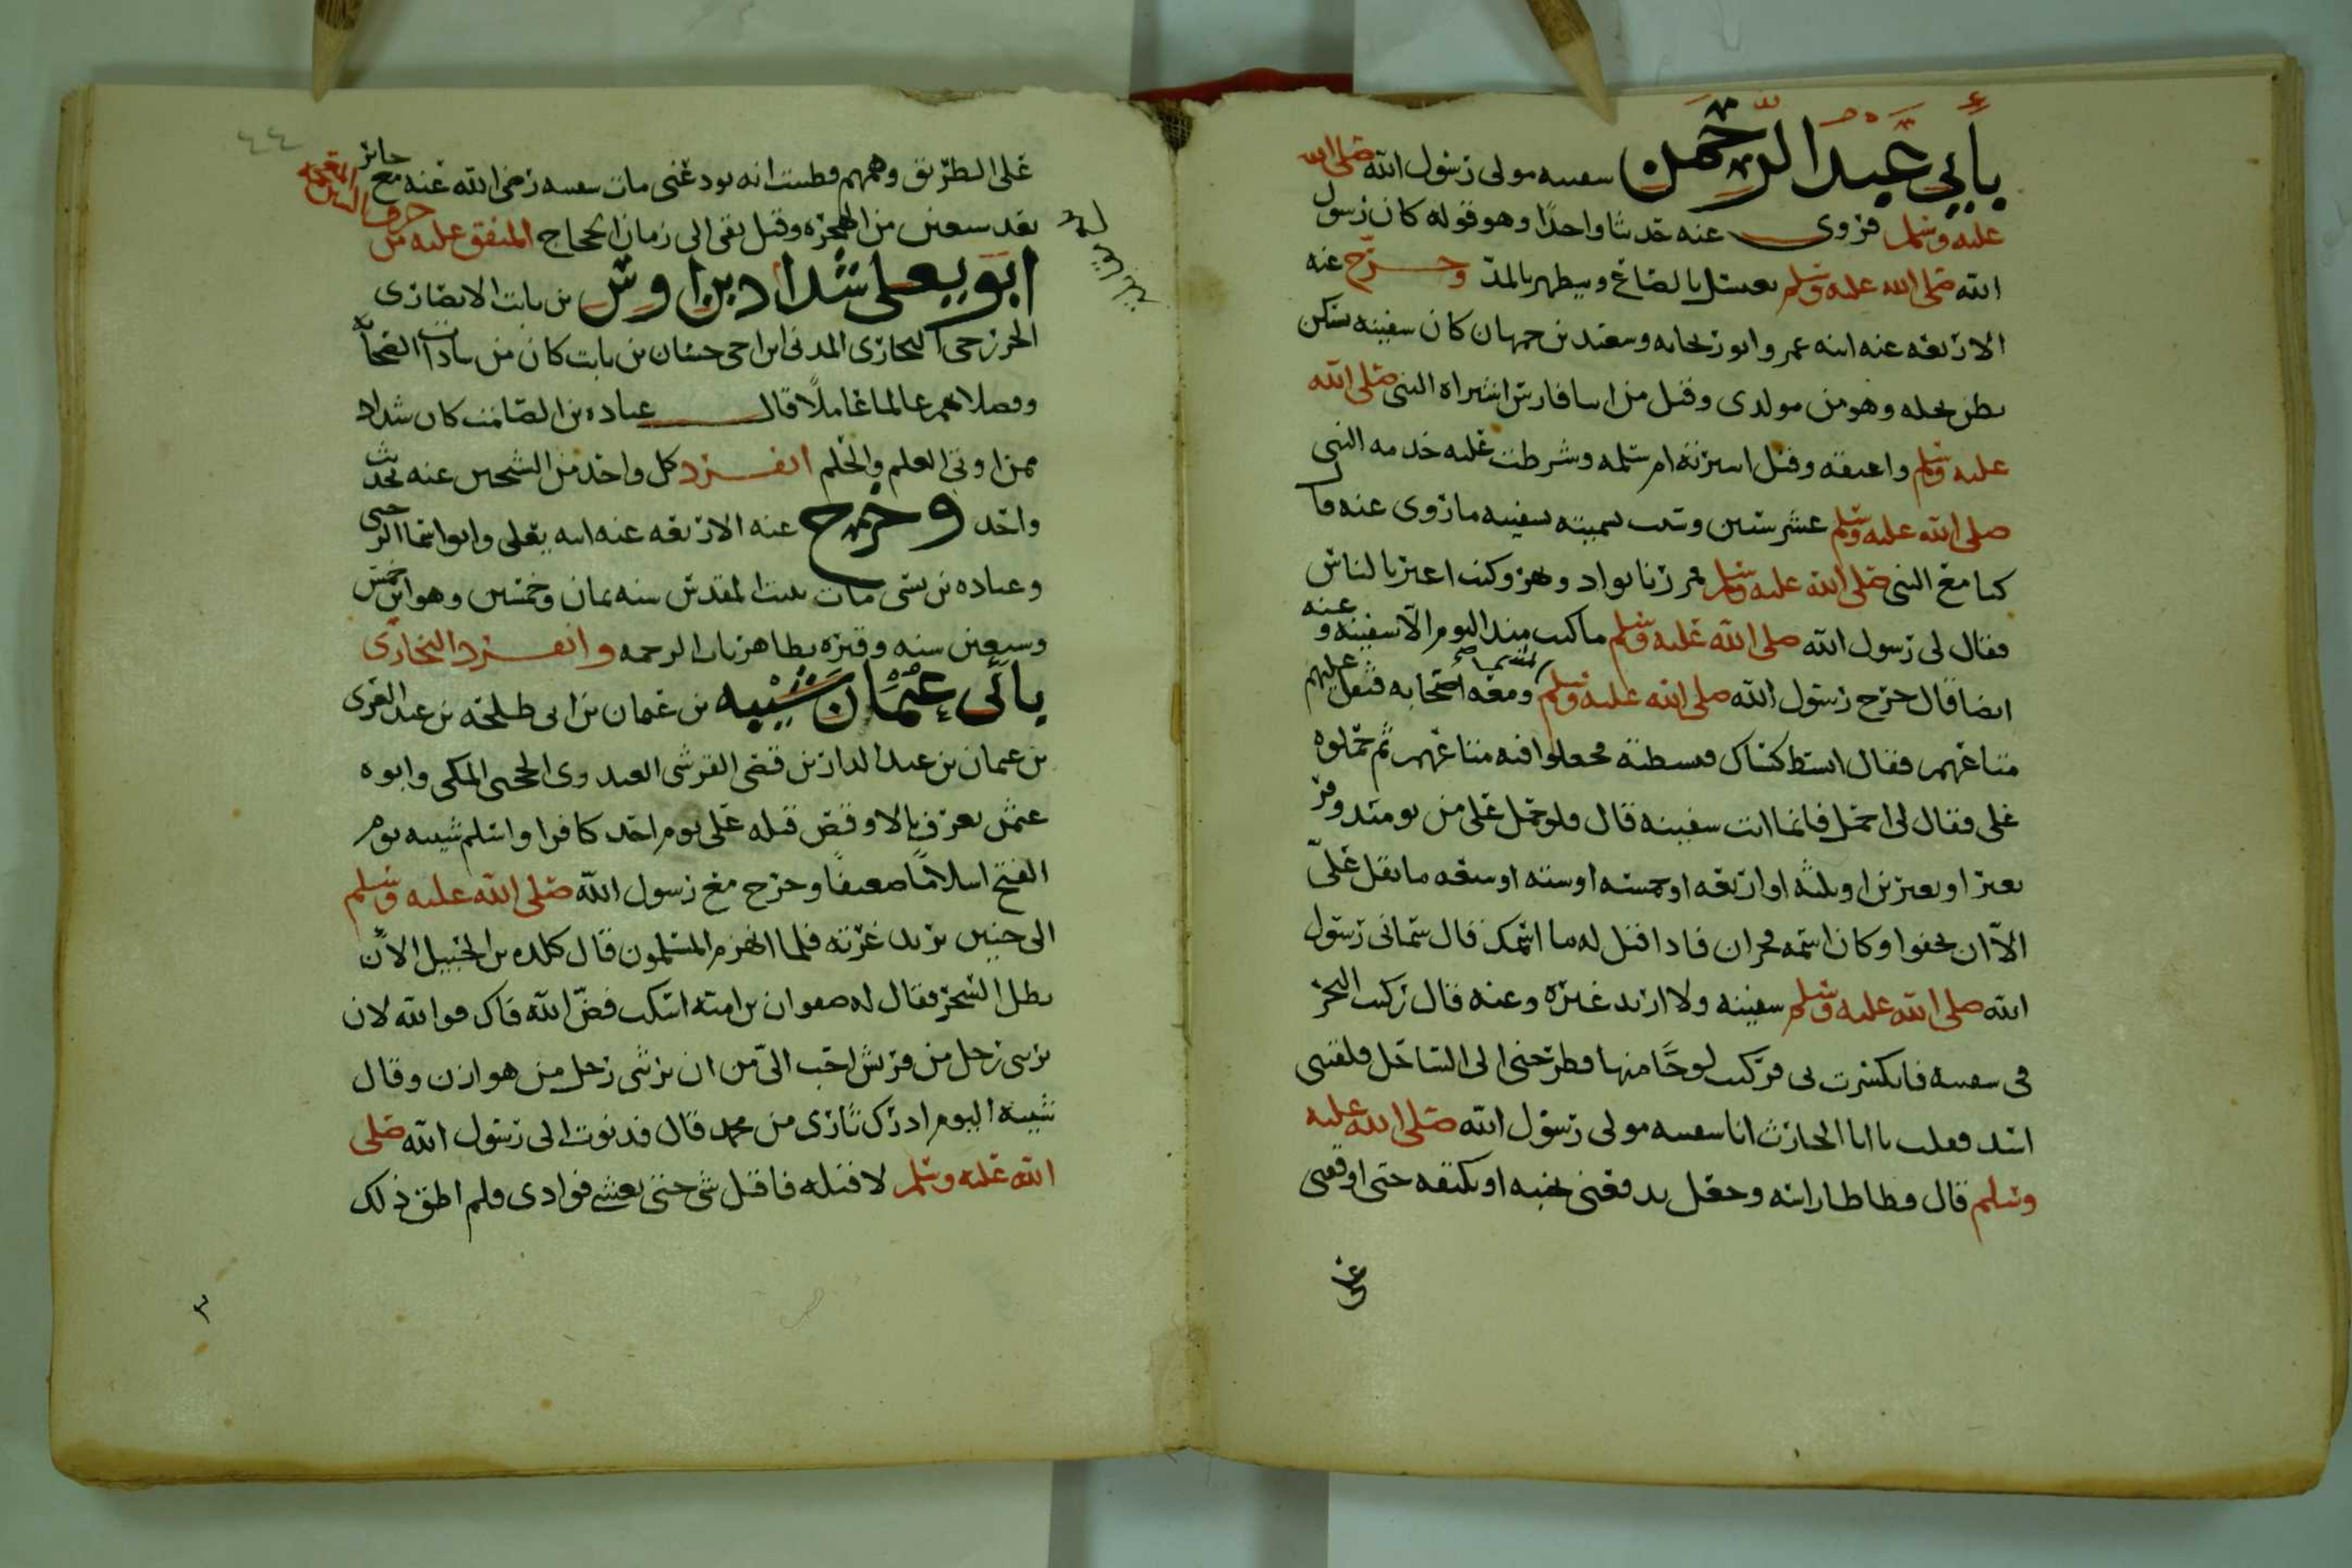 بأبي عبد الرحمن سفينه مولى رسول الله صلى الله
عليه وسلم فروى عنه حديثا واحدًا وهو قوله كان رسول
الله صلى الله عليه وسلم يغتسل بالصاع ويتطهر بالمد وخرج عنه
الاربعه عنه ابنه عمر وابو ريحانه وسعيد بن جمهان كان سفينه يسكن
بطن نخله وهو من مولدى وقيل من ابنا فارس اشتراه النبى صلى الله
عليه وسلم واعتقه وقيل اعتقته ام سلمه وشرطت عليه خدمه النبى
صلى الله عليه وسلم عشر سنين وسبب تسميته سفينه ما روى عنه قال
كنا مع النبى صلى الله عليه وسلم فمررنا بواد ونهر وكنت اعبر بالناس
فقال لى رسول الله صلى الله عليه وسلم ما كنت منذ اليوم الا سفينه وعنه
ايضا قال خرج رسول الله صلى الله عليه وسلم ومعه اصحابه فثقل عليهم
متاعهم فقال ابسط كساك فبسطته فجعلوا فيه متاعهم ثم حملوه
على فقال لى احمل فانما انت سفينه قال فلو حمل على من يومئذ وقر
بعير او بعيرين او ثلثه او اربعه او خمسه او سته او سبعه ما ثقل علىّ
الا ان يجفوا وكان اسمه مهران فاذا قيل له ما اسمك قال سمانى رسول
الله صلى الله عليه وسلم سفينه ولا اريد غيره وعنه قال ركبت البحر
فى سفينه فانكسرت بى فركبت لوحًا منها فطرحنى الى الساحل فلقينى
اسد فقلت يا ابا الحارث انا سفينه مولى رسول الله صلى الله عليه
وسلم قال فطاطا راسه وجعل يدفعنى بجنبه او بكتفه حتى اوقفنى
على
٤٤
على الطريق وهمهم فظننت انه يودعنى مات سفينه رضى الله عنه مع جابر
بعد سبعين من الهجره وقيل بقى الى زمان الحجاج المتفق عليه من حرف الشين المعجمه
ابو يعلى شداد بن اوس بن ثابت الانصارى
الخزرجى النجارى المدنى ابن اخى حسان بن ثابت كان من سادات الصحابه
وفضلاهم عالما عاملًا قال عباده بن الصامت كان شداد
ممن اوتى العلم والحلم انفرد كل واحد من الشيخين عنه بحديث
واحد وخرج عنه الاربعه عنه ابنه يعلى وابو اسما الرحبى
وعباده بن نسى مات ببيت المقدس سنه ثمان وخمسين وهو ابن خمس
وسبعين سنه وقبره بظاهر باب الرحمه وانفرد البخارى
بأبى عثمان شيبه بن عثمان بن ابى طلحه بن عبد العزى
بن عثمان بن عبد الدار بن قصى القرشى العبدرى الحجبى المكى وابوه
عثمن يعرف بالاوقص قتله على يوم احد كافرا واسلم شيبه يوم
الفتح اسلامًا ضعيفًا وخرج مع رسول الله صلى الله عليه وسلم
الى حنين يريد غرته فلما انهزم المسلمون قال كلده بن الحنبل الآن
بطل السحر فقال له صفوان بن اميه اسكت فضّ الله فاك فوالله لان
يربنى رجل من قريش احب الىّ من ان يربنى رجل من هوازن وقال
شيبه اليوم ادرك ثارى من محمد قال فدنوت الى رسول الله صلى
الله عليه وسلم لاقتله فاقبل شى حتى يغشى فوادى فلم اطق ذلك